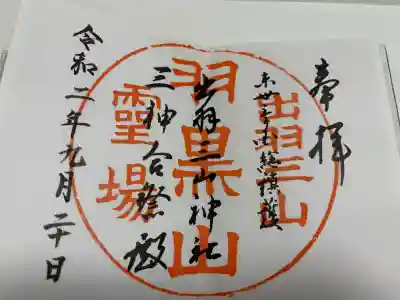 奉拝
出羽三山
出羽三山神社
羽黒山
三神合祭殿
霊場
令和二年九月二十日